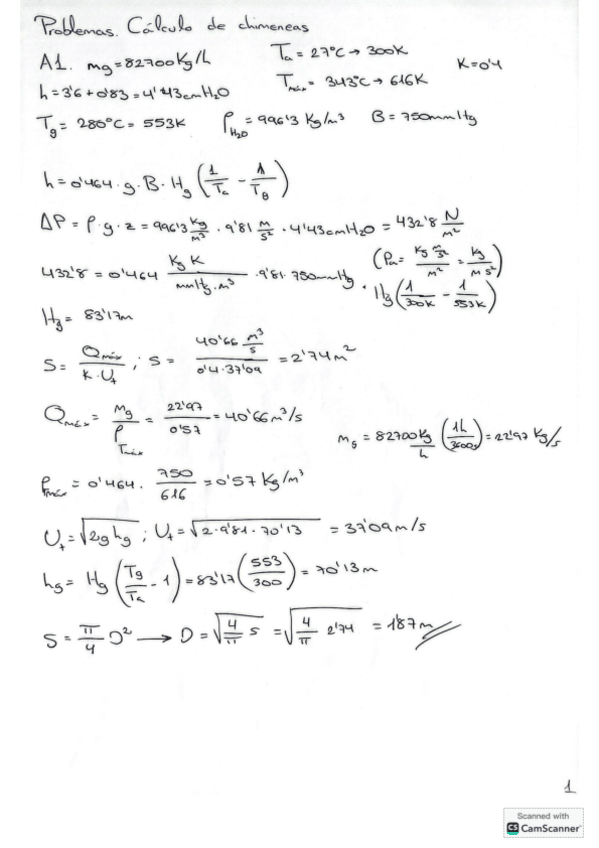 Problemas. Cálculo de chimeneas
A1. mg = 82700 Kg/h    Ta = 27°C → 300K    K = 0'4
h = 3'6 + 0'83 = 4'43 cm H2O    Tmáx = 343°C → 616K
Tg = 280°C = 553K    ρH2O = 996'3 Kg/m³    B = 750 mmHg
h = 0'464 · g · B · Hg (1/Ta - 1/TB)
ΔP = ρ · g · z = 996'3 Kg/m³ · 9'81 m/s² · 4'43 cm H2O = 432'8 N/m²
(Pa = Kg m/s² / m² = Kg/m s²)
432'8 = 0'464 Kg K / mmHg · m³ · 9'81 · 750 mmHg · Hg (1/300K - 1/553K)
Hg = 83'17m
S = Qmáx / K · Ut ; S = 40'66 m³/s / 0'4 · 37'09 = 2'74 m²
Qmáx = Mg / ρTmáx = 22'97 / 0'57 = 40'66 m³/s
mg = 82700 Kg/h (1h / 3600s) = 22'97 Kg/s
ρmáx = 0'464 · 750/616 = 0'57 Kg/m³
Ut = √2g hg ; Ut = √2 · 9'81 · 70'13 = 37'09 m/s
hg = Hg (Tg/Ta - 1) = 83'17 (553/300) = 70'13 m
S = π/4 D² → D = √4/π S = √4/π 2'74 = 1'87 m
1
Scanned with
CS CamScanner